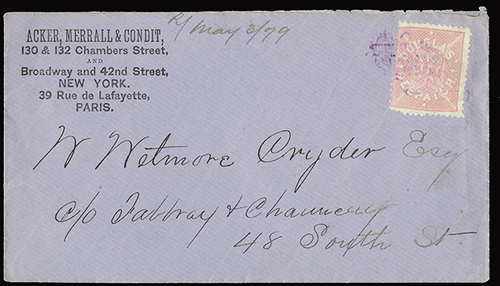 R/ May 3/79
ACKER, MERRALL & CONDIT,
130 & 132 Chambers Street,
AND
Broadway and 42nd Street,
NEW YORK.
39 Rue de Lafayette,
PARIS.
W Wetmore Cryder Esq
c/o Fabbray & Chauncey
48 South St.